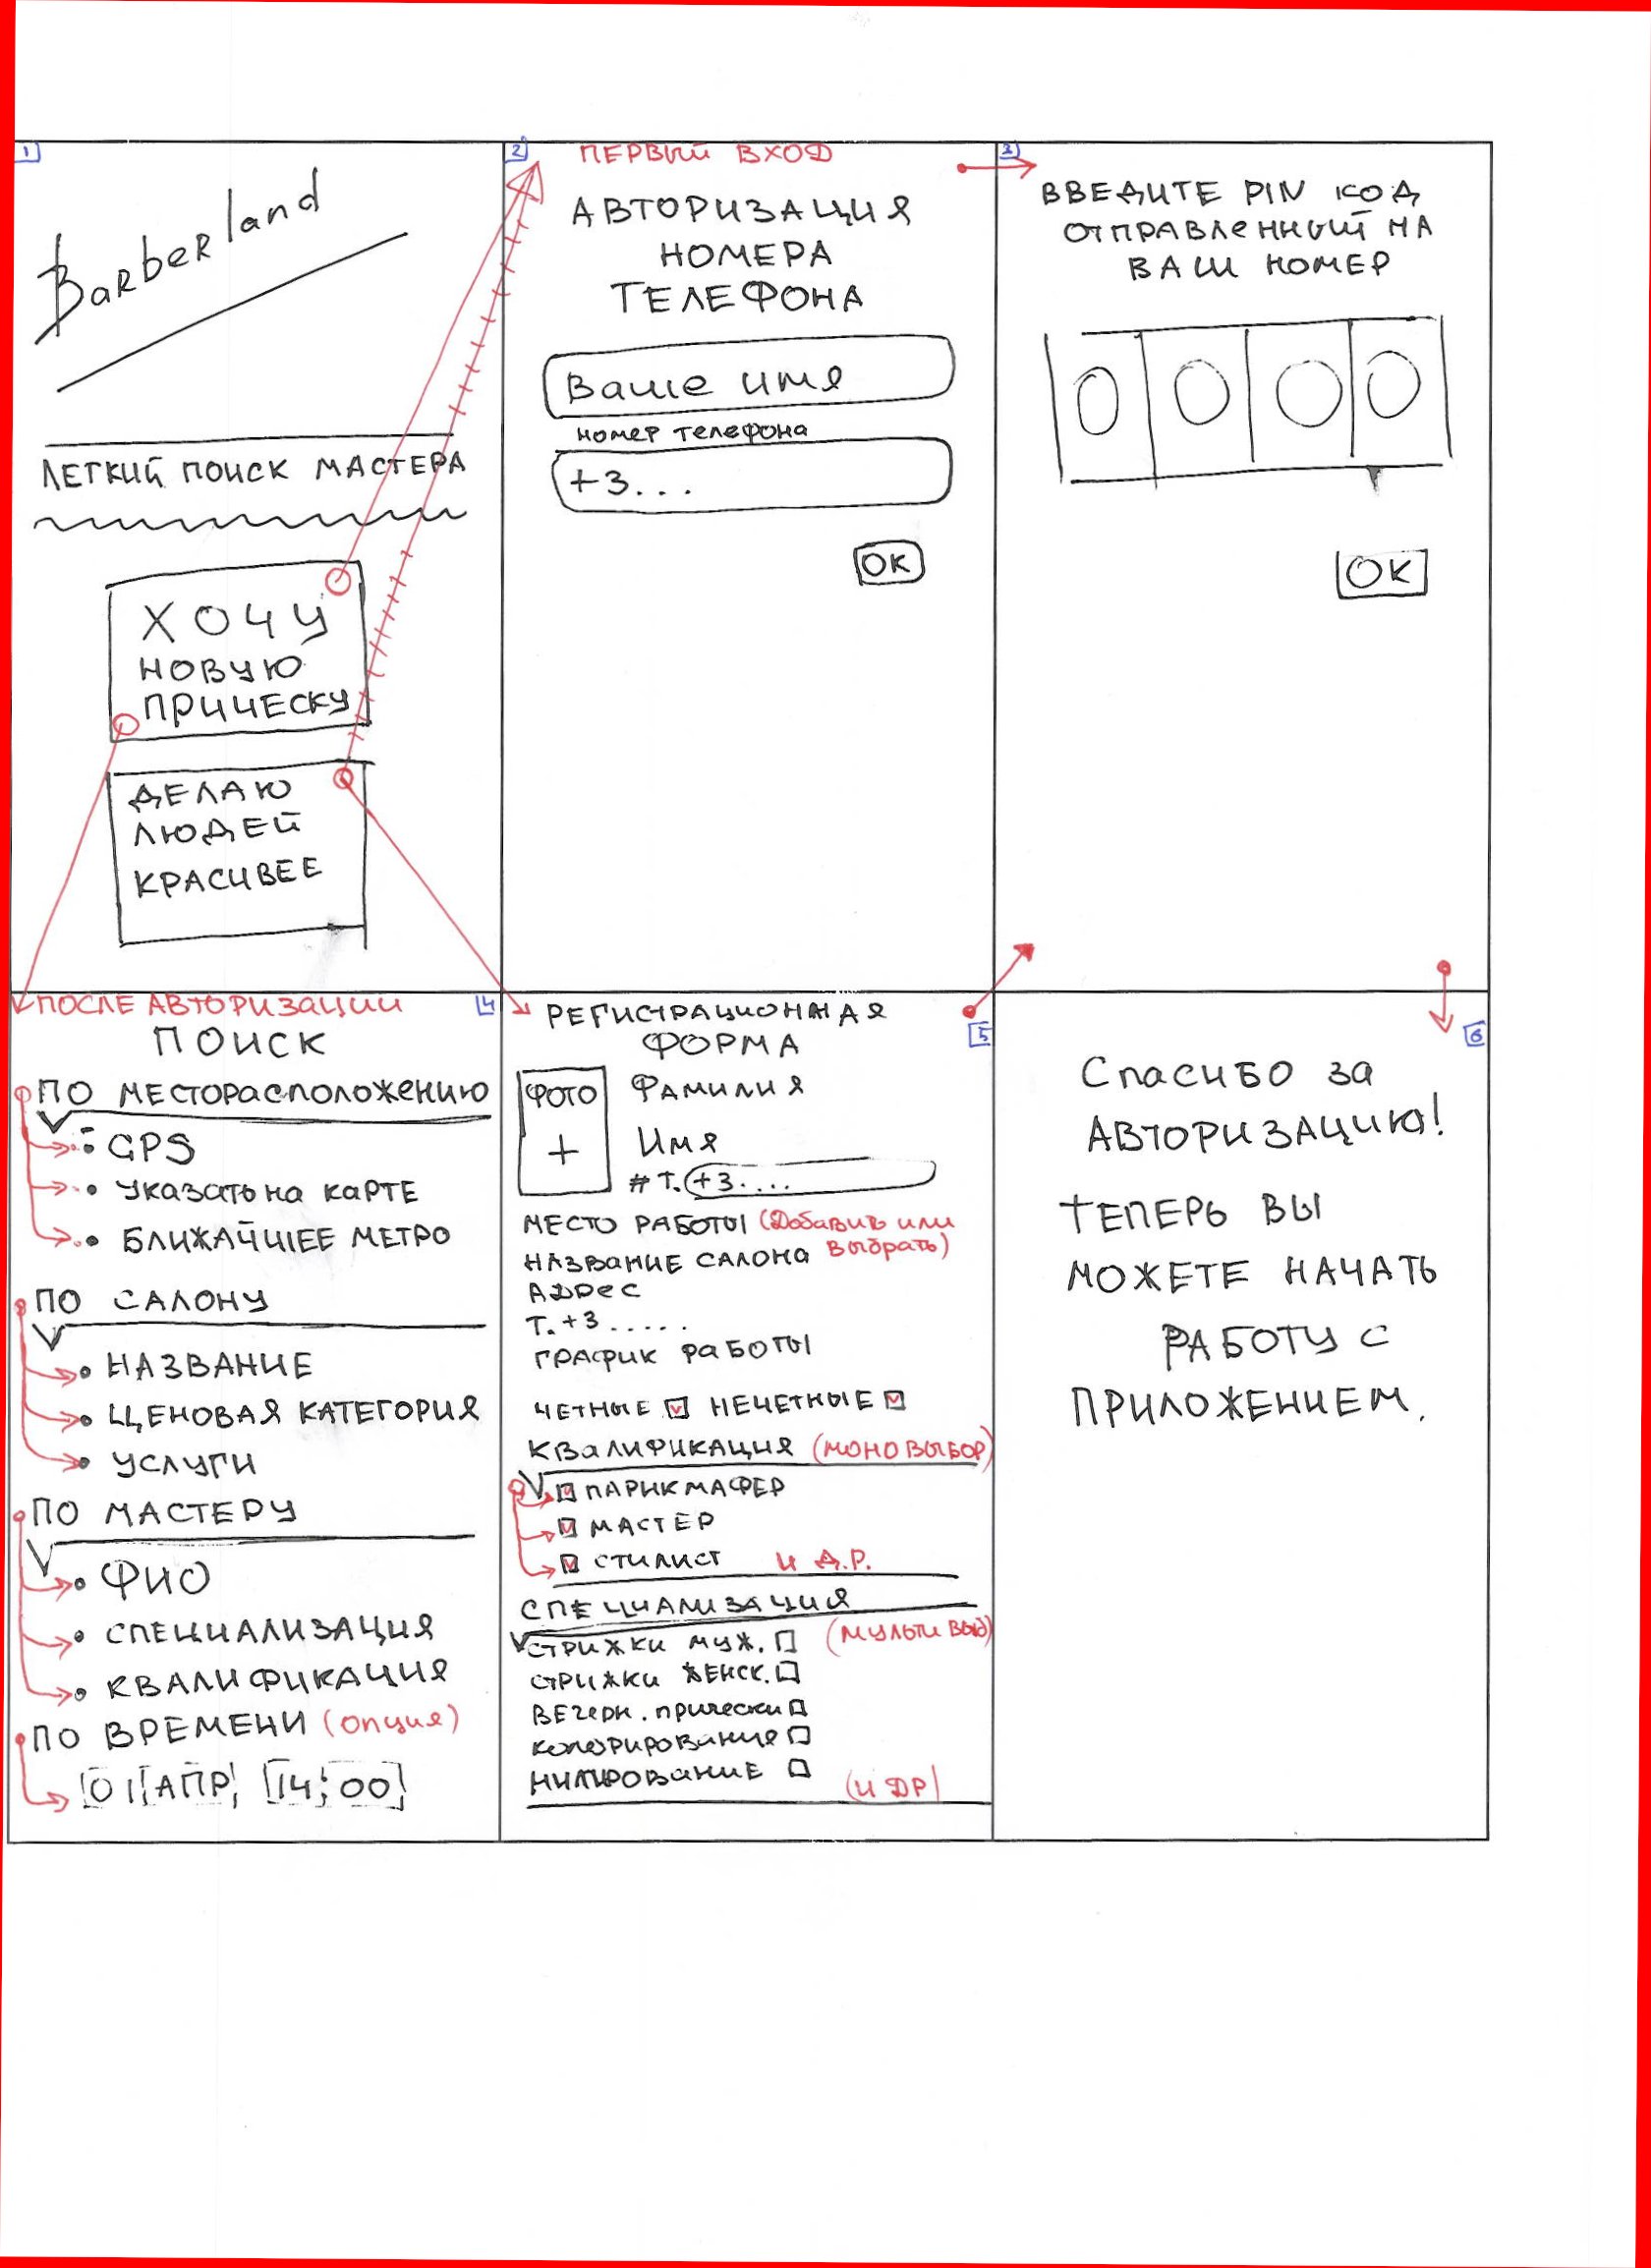 1
Barberland
ЛЕГКИЙ ПОИСК МАСТЕРА
ХОЧУ
НОВУЮ
ПРИЧЕСКУ
ДЕЛАЮ
ЛЮДЕЙ
КРАСИВЕЕ
2
ПЕРВЫЙ ВХОД
АВТОРИЗАЦИЯ
НОМЕРА
ТЕЛЕФОНА
Ваше имя
номер телефона
+3...
ОК
3
ВВЕДИТЕ PIN КОД
ОТПРАВЛЕННЫЙ НА
ВАШ НОМЕР
0 0 0 0
ОК
ПОСЛЕ АВТОРИЗАЦИИ
4
ПОИСК
ПО МЕСТОРАСПОЛОЖЕНИЮ
GPS
УКАЗАТЬ НА КАРТЕ
БЛИЖАЙШЕЕ МЕТРО
ПО САЛОНУ
НАЗВАНИЕ
ЦЕНОВАЯ КАТЕГОРИЯ
УСЛУГИ
ПО МАСТЕРУ
ФИО
СПЕЦИАЛИЗАЦИЯ
КВАЛИФИКАЦИЯ
ПО ВРЕМЕНИ (опция)
01 АПР 14:00
РЕГИСТРАЦИОННАЯ
ФОРМА
5
ФОТО
+
ФАМИЛИЯ
Имя
# Т. +3....
МЕСТО РАБОТЫ (Добавить или
выбрать)
НАЗВАНИЕ САЛОНА
АДРЕС
Т. +3.....
ГРАФИК РАБОТЫ
ЧЕТНЫЕ НЕЧЕТНЫЕ
КВАЛИФИКАЦИЯ (МОНОВЫБОР)
ПАРИКМАФЕР
МАСТЕР
СТИЛИСТ И Д.Р.
СПЕЦИАЛИЗАЦИЯ
(МУЛЬТИ ВЫБ)
СТРИЖКИ МУЖ.
СТРИЖКИ ЖЕНСК.
ВЕЧЕРН. ПРИЧЕСКИ
КОЛОРИРОВАНИЕ
(И ДР)
6
Спасибо за
АВТОРИЗАЦИЮ!
ТЕПЕРЬ ВЫ
МОЖЕТЕ НАЧАТЬ
РАБОТУ С
ПРИЛОЖЕНИЕМ.